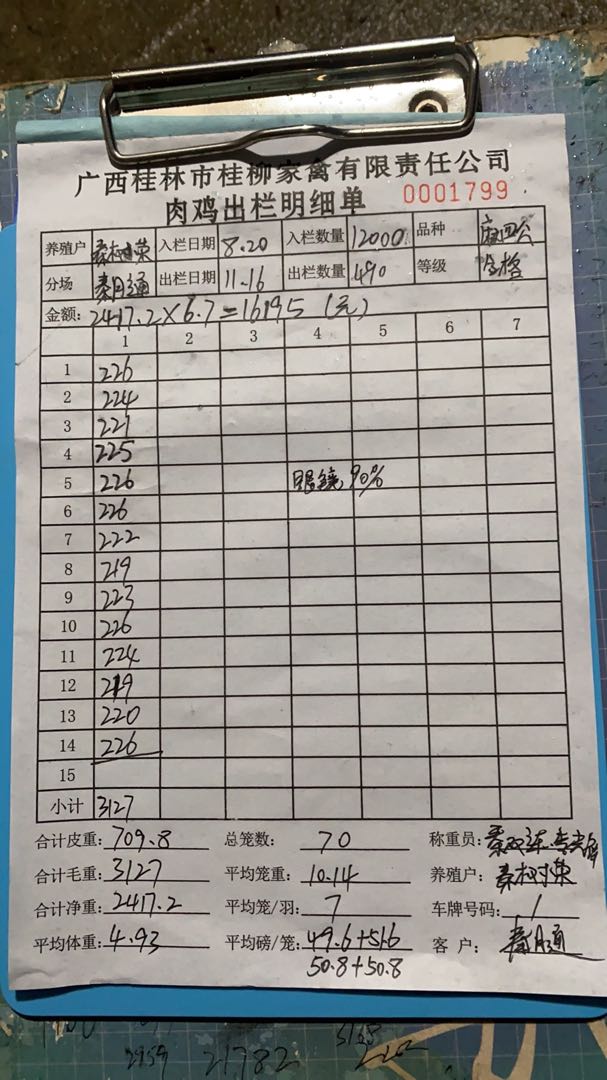 广西桂林市桂柳家禽有限责任公司
肉鸡出栏明细单 0001799
养殖户 秦树荣 入栏日期 8.20 入栏数量 12000 品种 麻四公
分场 秦月通 出栏日期 11.16 出栏数量 490 等级 合格
金额: 2417.2×6.7=16195 (元)
1 2 3 4 5 6 7
1 226
2 224
3 221
4 225
5 226 眼镜 90%
6 226
7 222
8 219
9 223
10 226
11 224
12 219
13 220
14 226
15
小计 3127
合计皮重: 709.8 总笼数: 70 称重员:
合计毛重: 3127 平均笼重: 10.14 养殖户: 秦树荣
合计净重: 2417.2 平均笼/羽: 7 车牌号码: /
平均体重: 4.93 平均磅/笼: 49.6+51.6 客户: 秦月通
50.8+50.8
2959 21782